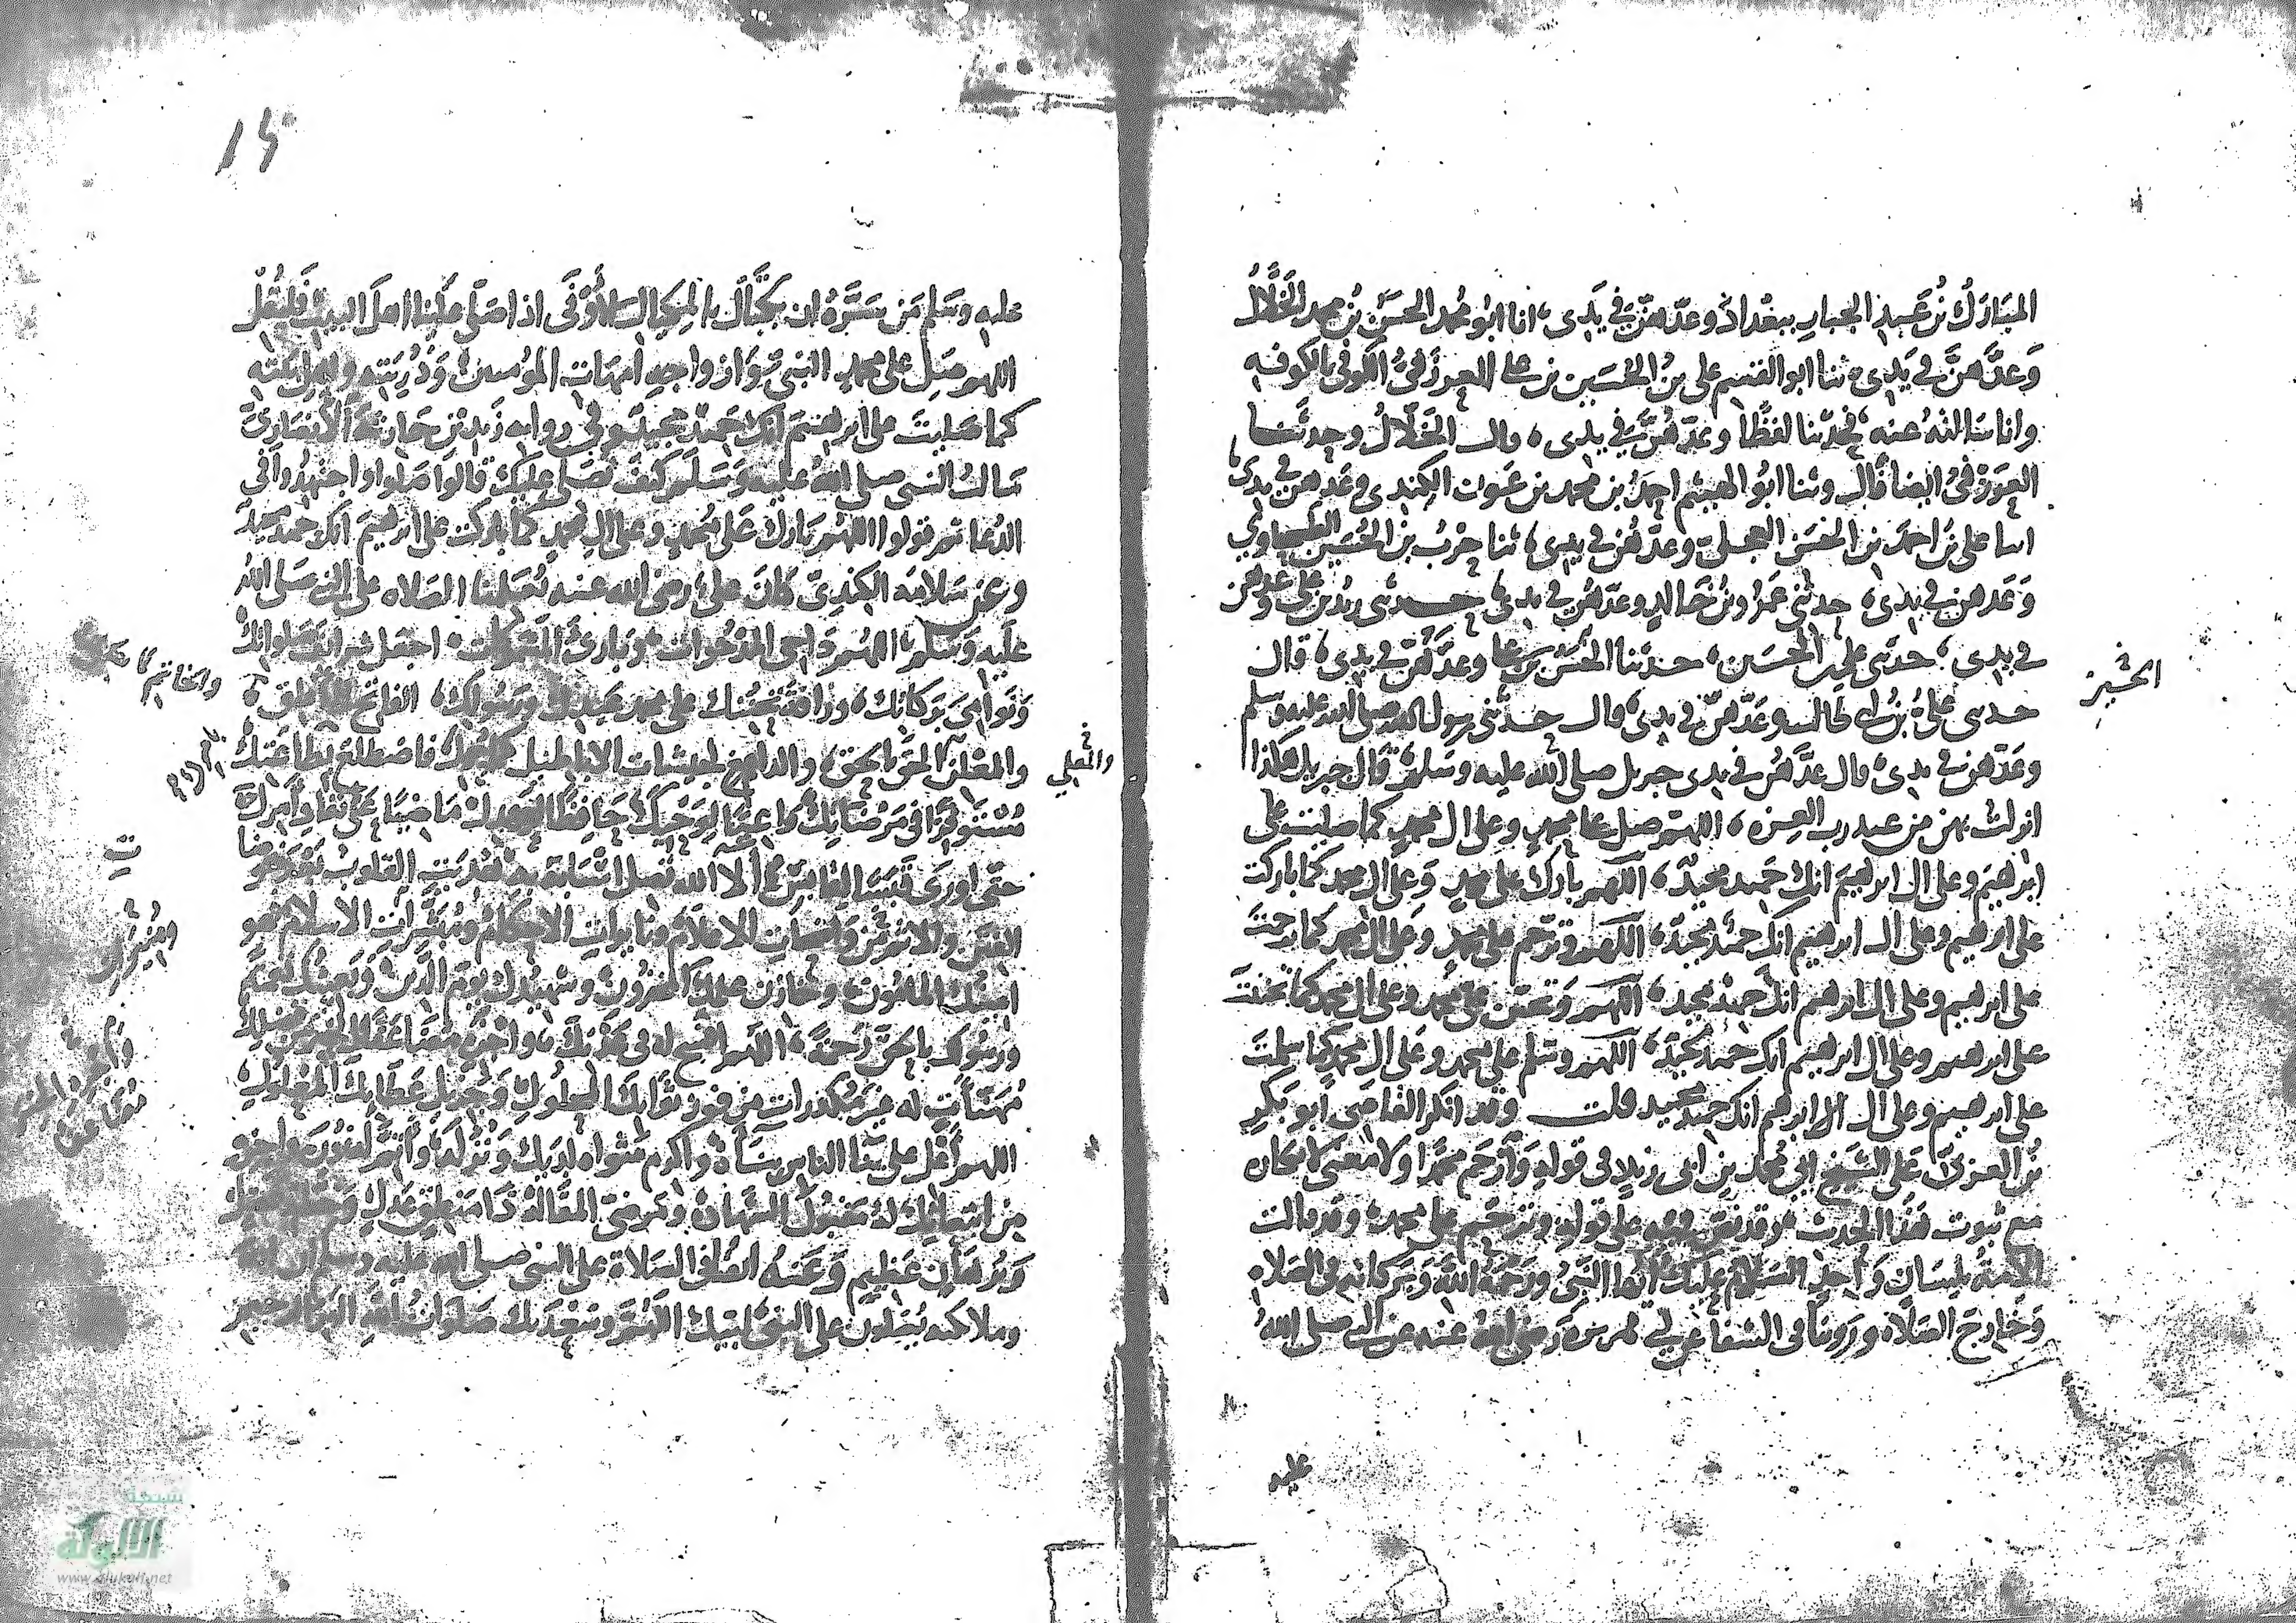 المبارك بن عبد الجبار ببغداد وعدهن في يدي، انا ابو محمد الحسن بن محمد الخلال
وعدهن في يدي، ثنا ابو القسم علي بن الحسين بن علي العرزمي الكوفي بالكوفه
وانا سالته عنه، فحدثنا لفظا وعدهن في يدي، قال الخلال وحدثنا
العرزمي ايضا قال وثنا ابو الهيثم احمد بن محمد بن عون الكندي وعدهن في يدي
انبا علي بن احمد بن الحسين العجلي وعدهن في يدي، ثنا حرب بن الحسين الطحاوي
وعدهن في يدي، حدثني عمرو بن خالد وعدهن في يدي، حدثني زيد بن علي وعدهن
في يدي، حدثني علي بن الحسين، حدثنا الحسين بن علي وعدهن في يدي، قال
الحسين
حدثني علي بن ابي طالب وعدهن في يدي، قال حدثني رسول الله صلى الله عليه وسلم
وعدهن في يدي، قال عدهن في يدي جبريل صلى الله عليه وسلم، قال جبريل هكذا
انزلت بهن من عند رب العزه، اللهم صل على محمد وعلى ال محمد كما صليت على
ابرهيم وعلى ال ابرهيم انك حميد مجيد، اللهم بارك على محمد وعلى ال محمد كما باركت
على ابرهيم وعلى ال ابرهيم انك حميد مجيد، اللهم وترحم على محمد وعلى ال محمد كما ترحمت
على ابرهيم وعلى ال ابرهيم انك حميد مجيد، اللهم وتحنن على محمد وعلى ال محمد كما تحننت
على ابرهيم وعلى ال ابرهيم انك حميد مجيد، اللهم وسلم على محمد وعلى ال محمد كما سلمت
على ابرهيم وعلى ال ابرهيم انك حميد مجيد قلت وقد انكر القاضي ابو بكر
بن العربي على الشيخ ابي محمد بن ابي زيد في قوله وارحم محمدا ولا معنى لانكاره
مع ثبوت هذا الحديث على قوله وترحم على محمد، وقد قالت
الامة بلسان واحد السلام عليك ايها النبي ورحمة الله وبركاته في الصلاه
وخارج الصلاه وروينا في الشفا عن ابي هريره رضي الله عنه عن النبي صلى الله
عليه
عليه وسلم من سره ان يكتال بالمكيال الاوفى اذا صلى علينا اهل البيت فليقل
اللهم صل على محمد النبي وازواجه امهات المؤمنين وذريته واهل بيته
كما صليت على ابرهيم انك حميد مجيد وفي روايه زيد بن حارثة الانصاري
سالت النبي صلى الله عليه وسلم كيف نصلي عليك قال صلوا واجتهدوا في
الدعا ثم قولوا اللهم بارك على محمد وعلى ال محمد كما باركت على ابرهيم انك حميد مجيد
وعن سلامة الكندي كان علي رضي الله عنه يعلمنا الصلاه على النبي صلى الله
عليه وسلم، اللهم داحي المدحوات، وبارئ المسموكات، اجعل شرائف صلواتك
ونوامي بركاتك، ورافة تحننك على محمد عبدك ورسولك، الفاتح لما اغلق،
والخاتم لما سبق
والمعلن الحق بالحق، والدامغ لجيشات الاباطيل كما حمل، فاضطلع بطاعتك
مستوفزا في مرضاتك واعيا لوحيك حافظا لعهدك ماضيا على نفاذ امرك
حتى اورى قبسا لقابس الا الله تصل باهله اسبابه به هديت القلوب بعد خوضات
الفتن والاثم وموضحات الاعلام ونايرات الاحكام ومنيرات الاسلام فهو
امينك المامون، وخازن علمك المخزون، وشهيدك يوم الدين، وبعيثك نعمة
ورسولك بالحق رحمة، اللهم افسح له في عدنك، واجزه مضاعفات الخير من فضلك
مهنآت له غير مكدرات من فوز ثوابك المحلول، وجزيل عطائك المعلول،
اللهم اعل على بنا الناس بناه، واكرم مثواه لديك ونزله، واتمم له نوره، واجزه
من ابتعاثك له مقبول الشهاده، ومرضي المقاله ذا منطق عدل وخطة فصل
وبرهان عظيم، وعنه ايضا في الصلاة على النبي صلى الله عليه وسلم ان الله
وملائكته يصلون على النبي لبيك اللهم وسعديك صلوات الله البر الرحيم
شبكة
الألوكة
www.alukah.net